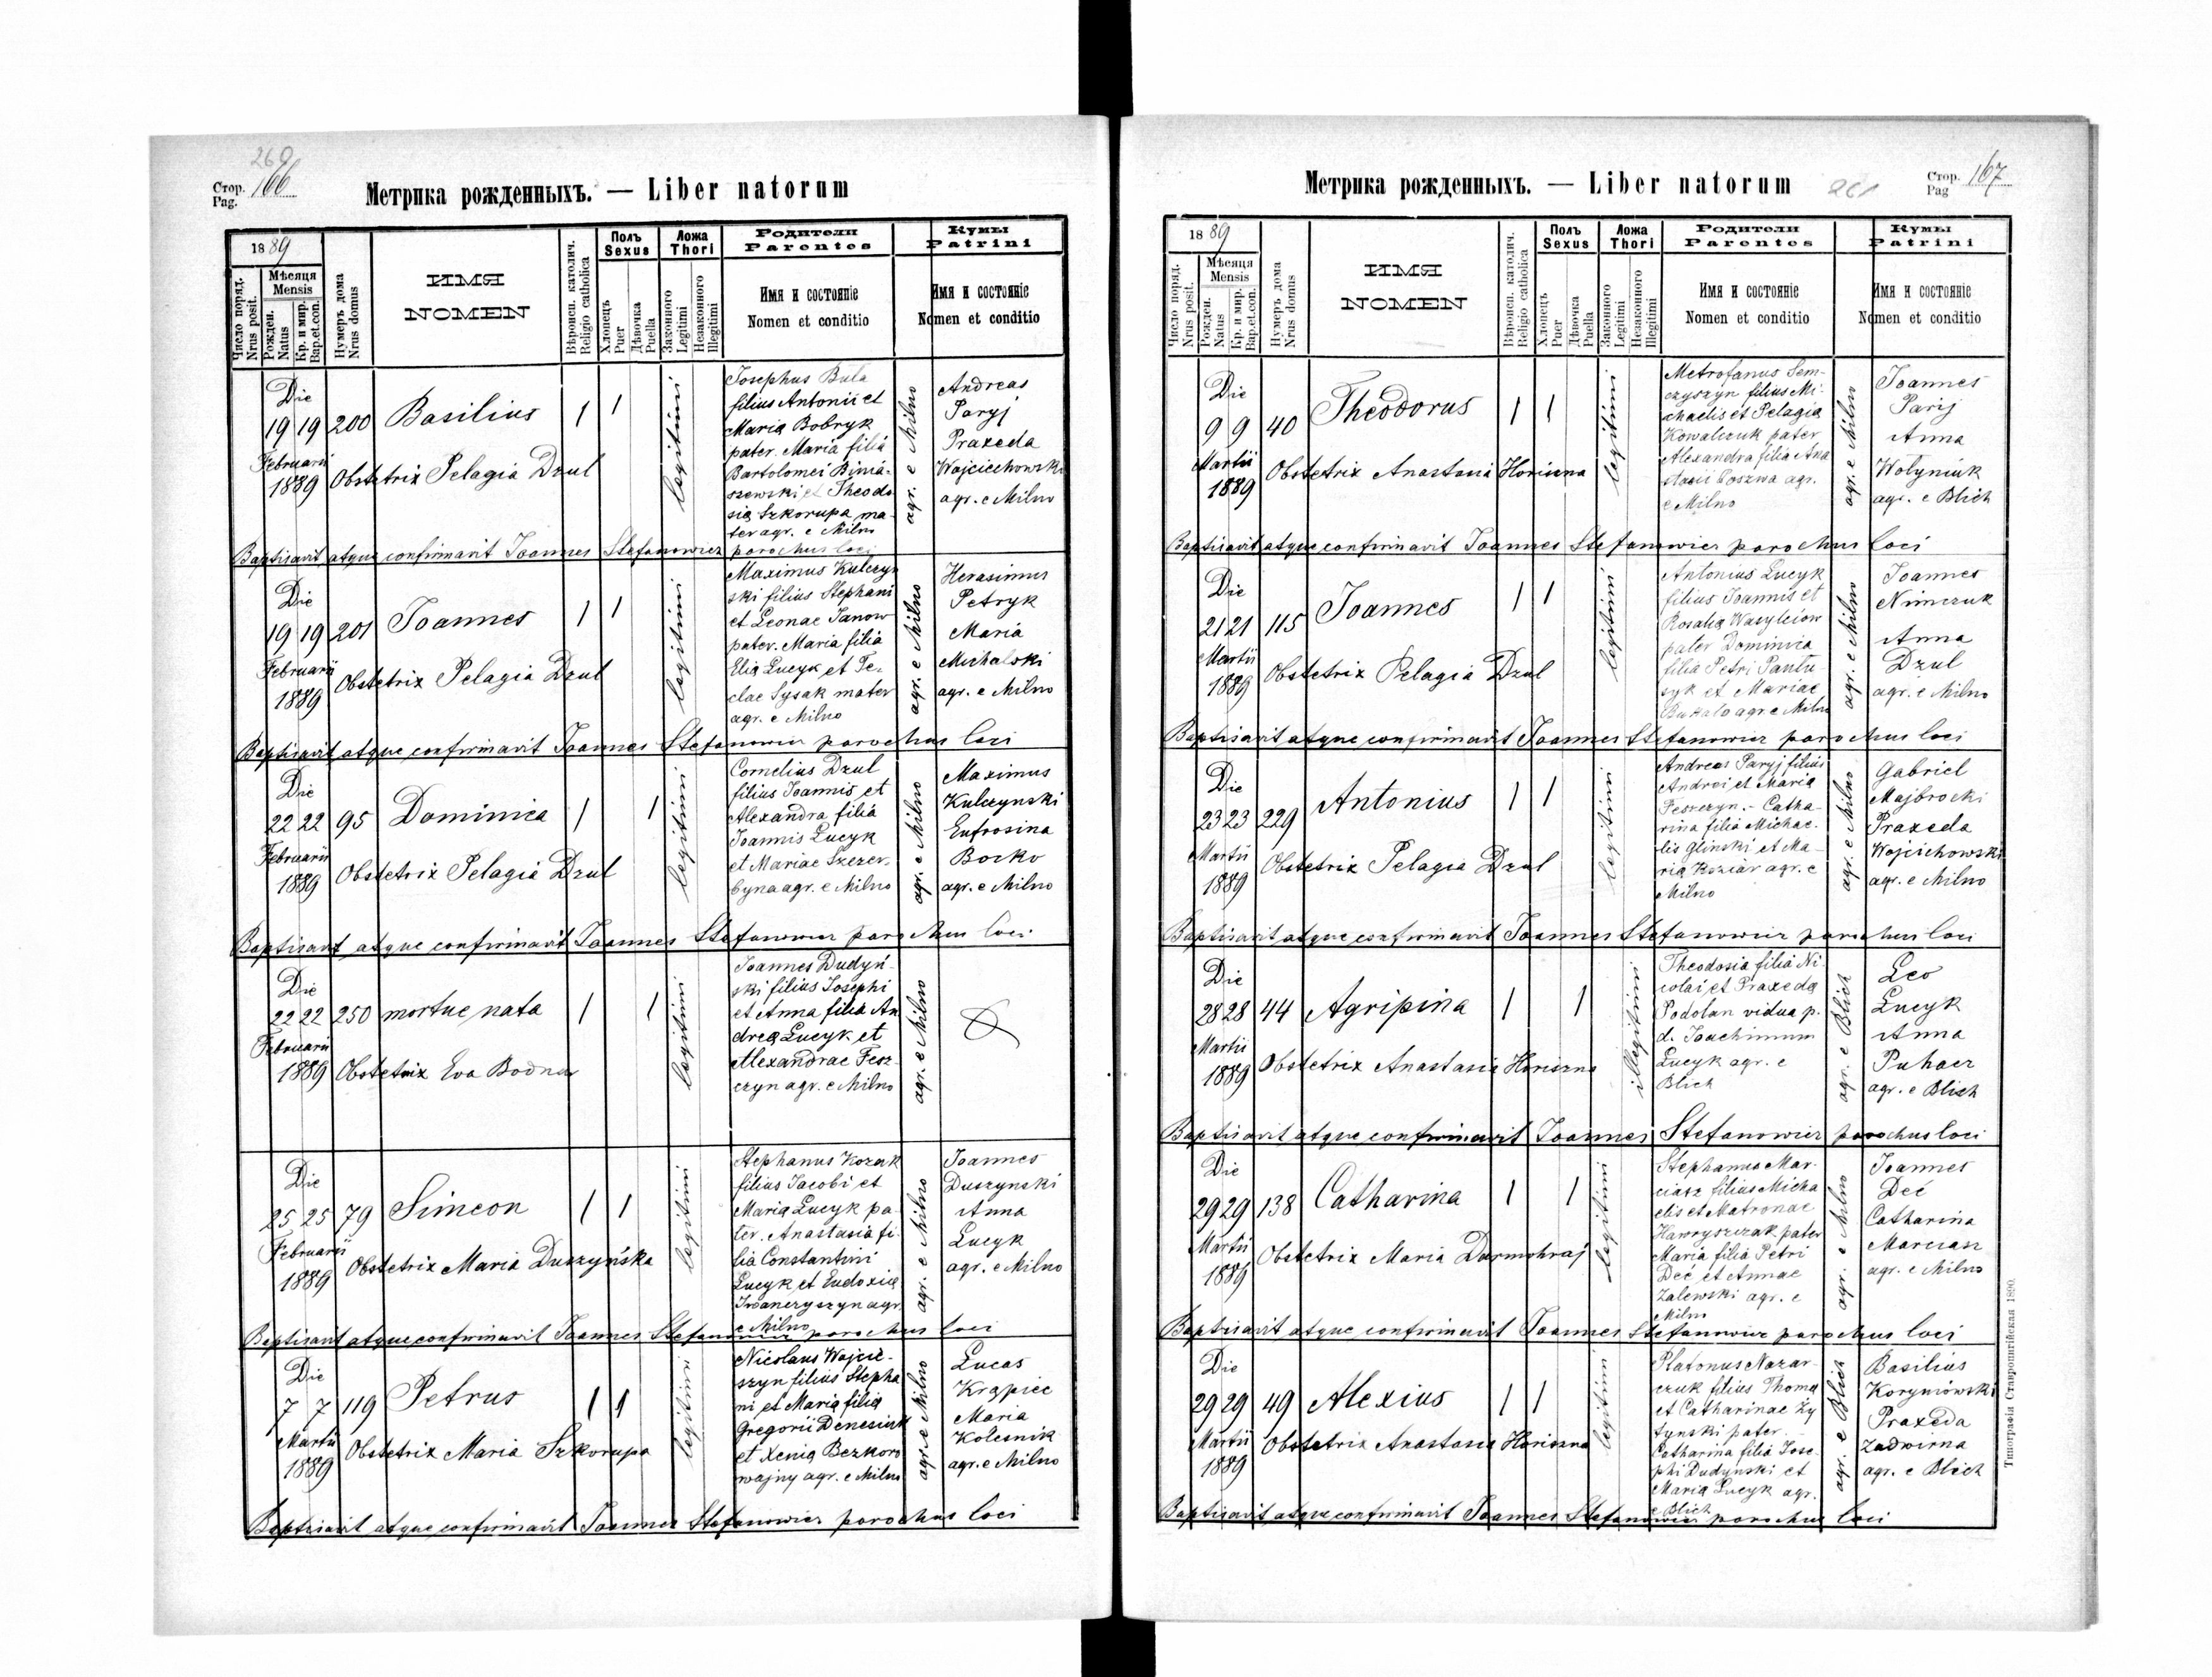 260
Стор. 166
Pag.
Метрика рожденныхъ. — Liber natorum
1889
Число поряд.
Nrus posit.
Мѣсяця
Mensis
Рожден.
Natus
Кр. и мир.
Bap.et.con.
Нумеръ дома
Nrus domus
ИМЯ
NOMEN
Вѣроисп. католич.
Religio catholica
Полъ
Sexus
Хлопецъ
Puer
Дѣвочка
Puella
Ложа
Thori
Законного
Legitimi
Незаконного
Illegitimi
Родители
Parentes
Имя и состояніе
Nomen et conditio
Кумы
Patrini
Имя и состояніе
Nomen et conditio
Die
19 19 200 Basilius 1 1
Februarii
1889 Obstetrix Pelagia Dzul
legitimi
Josephus Bula
filius Antonii et
Maria Bobryk
pater. Maria filia
Bartolomei Binia-
szewski et Theodo
sia Szkorupa ma-
ter agr. e Milno
agr. e Milno
Andreas
Paryj
Praxeda
Wojciechowski
agr. e Milno
Baptisavit atque confirmavit Joannes Stefanowicz parochus loci
Die
19 19 201 Joannes 1 1
Februarii
1889 Obstetrix Pelagia Dzul
legitimi
Maximus Kulczyn
ski filius Stephani
et Leonae Janow
pater. Maria filia
Elia Lucyk et Te-
clae Sysak mater
agr. e Milno
agr. e Milno
Herasimus
Petryk
Maria
Michalski
agr. e Milno
Baptisavit atque confirmavit Joannes Stefanowicz parochus loci
Die
22 22 95 Dominica 1 1
Februarii
1889 Obstetrix Pelagia Dzul
legitimi
Cornelius Dzul
filius Joannis et
Alexandra filia
Joannis Lucyk
et Mariae Szczer-
byna agr. e Milno
agr. e Milno
Maximus
Kulczynski
Eufrosina
Bocko
agr. e Milno
Baptisavit atque confirmavit Joannes Stefanowicz parochus loci
Die
22 22 250 mortue nata 1 1
Februarii
1889 Obstetrix Eva Bodnar
legitimi
Joannes Dudyń-
ski filius Josephi
et Anna filia An
drea Lucyk et
Alexandrae Fesz-
czyn agr. e Milno
agr. e Milno
Die
25 25 79 Simeon 1 1
Februarii
1889 Obstetrix Maria Duszyńska
legitimi
Stephanus Kozak
filius Jacobi et
Maria Lucyk pa-
ter. Anastasia fi-
lia Constantini
Lucyk et Eudoxia
Iwanczyszyn agr.
e Milno
agr. e Milno
Joannes
Duszynski
Anna
Lucyk
agr. e Milno
Baptisavit atque confirmavit Joannes Stefanowicz parochus loci
Die
7 7 119 Petrus 1 1
Martii
1889 Obstetrix Maria Szkorupa
legitimi
Nicolaus Wojcie-
szyn filius Stepha
ni et Maria filia
Gregorii Denesiuk
et Xenia Bezkoro
wajny agr. e Milno
agr. e Milno
Lucas
Krąpiec
Maria
Kolesnik
agr. e Milno
Baptisavit atque confirmavit Joannes Stefanowicz parochus loci
Метрика рожденныхъ. — Liber natorum
261
Стор. 167
Pag
1889
Число поряд.
Nrus posit.
Мѣсяця
Mensis
Рожден.
Natus
Кр. и мир.
Bap.et.con.
Нумеръ дома
Nrus domus
ИМЯ
NOMEN
Вѣроисп. католич.
Religio catholica
Полъ
Sexus
Хлопецъ
Puer
Дѣвочка
Puella
Ложа
Thori
Законного
Legitimi
Незаконного
Illegitimi
Родители
Parentes
Имя и состояніе
Nomen et conditio
Кумы
Patrini
Имя и состояніе
Nomen et conditio
Die
9 9 40 Theodorus 1 1
Martii
1889 Obstetrix Anastasia Horiszna
legitimi
Metrofanus Sem-
czyszyn filius Mi-
chaelis et Pelagia
Kowalczuk pater
Alexandra filia Ana
stasii Poszwa agr.
e Milno
agr. e Milno
Joannes
Parij
Anna
Wołyniuk
agr. e Blich
Baptisavit atque confirmavit Joannes Stefanowicz parochus loci
Die
21 21 115 Joannes 1 1
Martii
1889 Obstetrix Pelagia Dzul
legitimi
Antonius Lucyk
filius Joannis et
Rosalia Wasylciow
pater Dominica
filia Petri Pantu-
syk et Mariae
Bukało agr. e Milno
agr. e Milno
Joannes
Nimczuk
Anna
Dzul
agr. e Milno
Baptisavit atque confirmavit Joannes Stefanowicz parochus loci
Die
23 23 229 Antonius 1 1
Martii
1889 Obstetrix Pelagia Dzul
legitimi
Andreas Paryj filius
Andrei et Maria
Feszczyn.- Catha-
rina filia Michae-
lis Glinski et Ma-
ria Koziar agr. e
Milno
agr. e Milno
Gabriel
Majbrocki
Praxeda
Wojcichowski
agr. e Milno
Baptisavit atque confirmavit Joannes Stefanowicz parochus loci
Die
28 28 44 Agripina 1 1
Martii
1889 Obstetrix Anastasia Horiszna
illegitimi
Theodosia filia Ni-
colai et Praxeda
Podolan vidua p.
d. Joachimum
Lucyk agr. e
Blich
agr. e Blich
Leo
Lucyk
Anna
Puhacz
agr. e Blich
Baptisavit atque confirmavit Joannes Stefanowicz parochus loci
Die
29 29 138 Catharina 1 1
Martii
1889 Obstetrix Maria Darmohraj
legitimi
Stephanus Mar-
ciasz filius Micha
elis et Matronae
Hawryszczak pater
Maria filia Petri
Deć et Annae
Zalewski agr. e
Milno
agr. e Milno
Joannes
Deć
Catharina
Marciasz
agr. e Milno
Baptisavit atque confirmavit Joannes Stefanowicz parochus loci
Die
29 29 49 Alexius 1 1
Martii
1889 Obstetrix Anastasia Horiszna
legitimi
Platonus Nazar-
czuk filius Thoma
et Catharinae Ży
tynski pater.
Catharina filia Jose-
phi Dudynski et
Maria Lucyk agr.
e Blich
agr. e Blich
Basilius
Koryniówski
Praxeda
Zadwirna
agr. e Blich
Baptisavit atque confirmavit Joannes Stefanowicz parochus loci
Типографія Ставропигійская 1890.